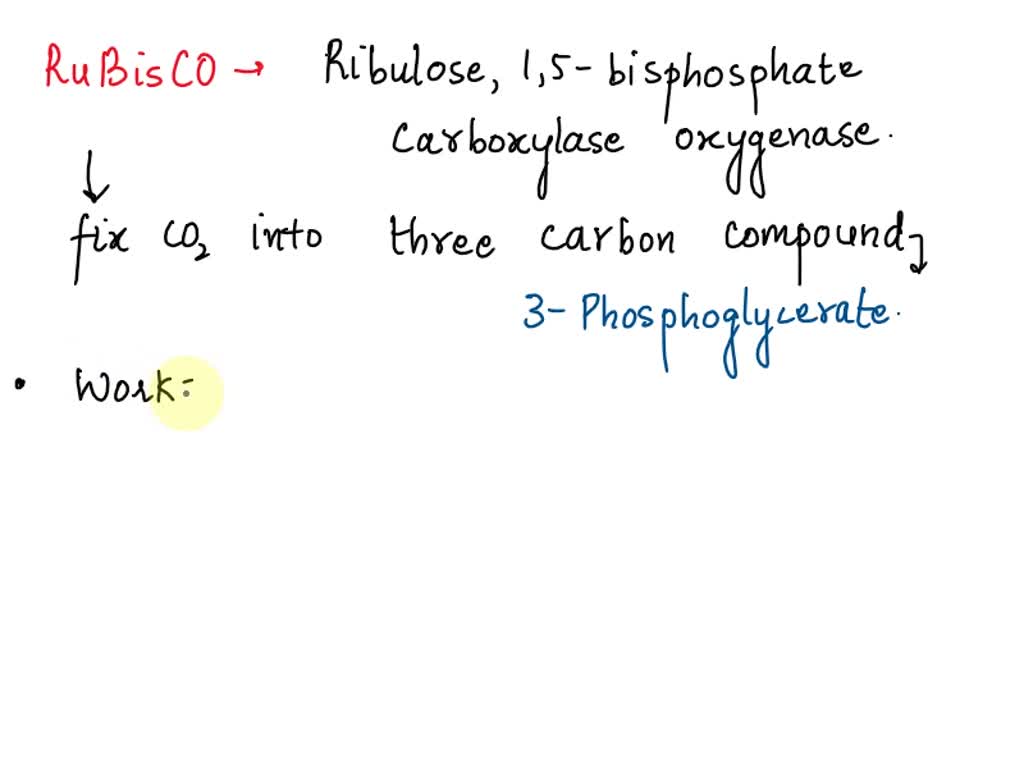 RuBisCO → Ribulose, 1,5-bisphosphate
carboxylase oxygenase.
↓
fix CO₂ into three carbon compound ↓
3- Phosphoglycerate.
• Work: